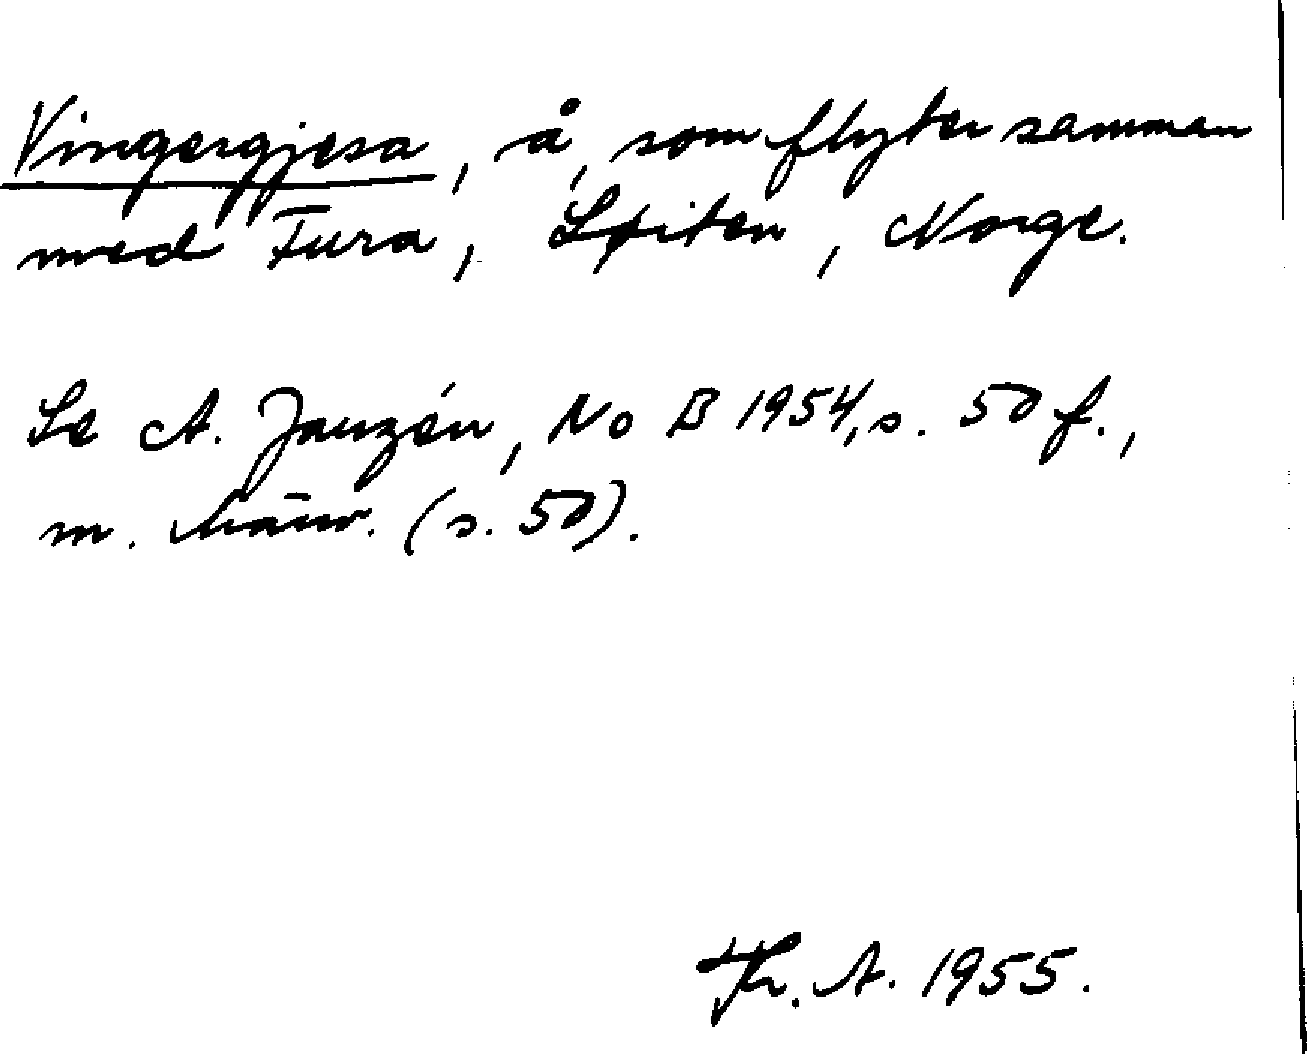 Vingergjesa, å, som flyter samman
med Fura, Løiten, Norge.
Se A. Janzén, No B 1954, s. 50 f.,
m. hänv. (s. 50).
Th. A. 1955.